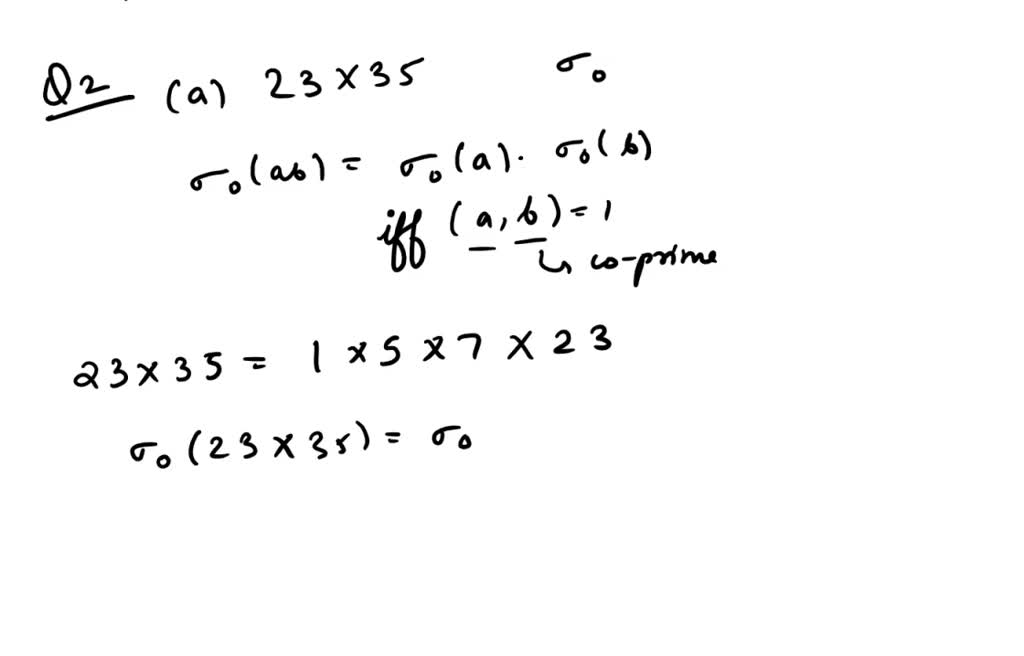 Q2 (a) 23 × 35 σ₀
σ₀(ab) = σ₀(a). σ₀(b)
iff (a, b) = 1
↳ co-prime
23 × 35 = 1 × 5 × 7 × 23
σ₀(23 × 35) = σ₀